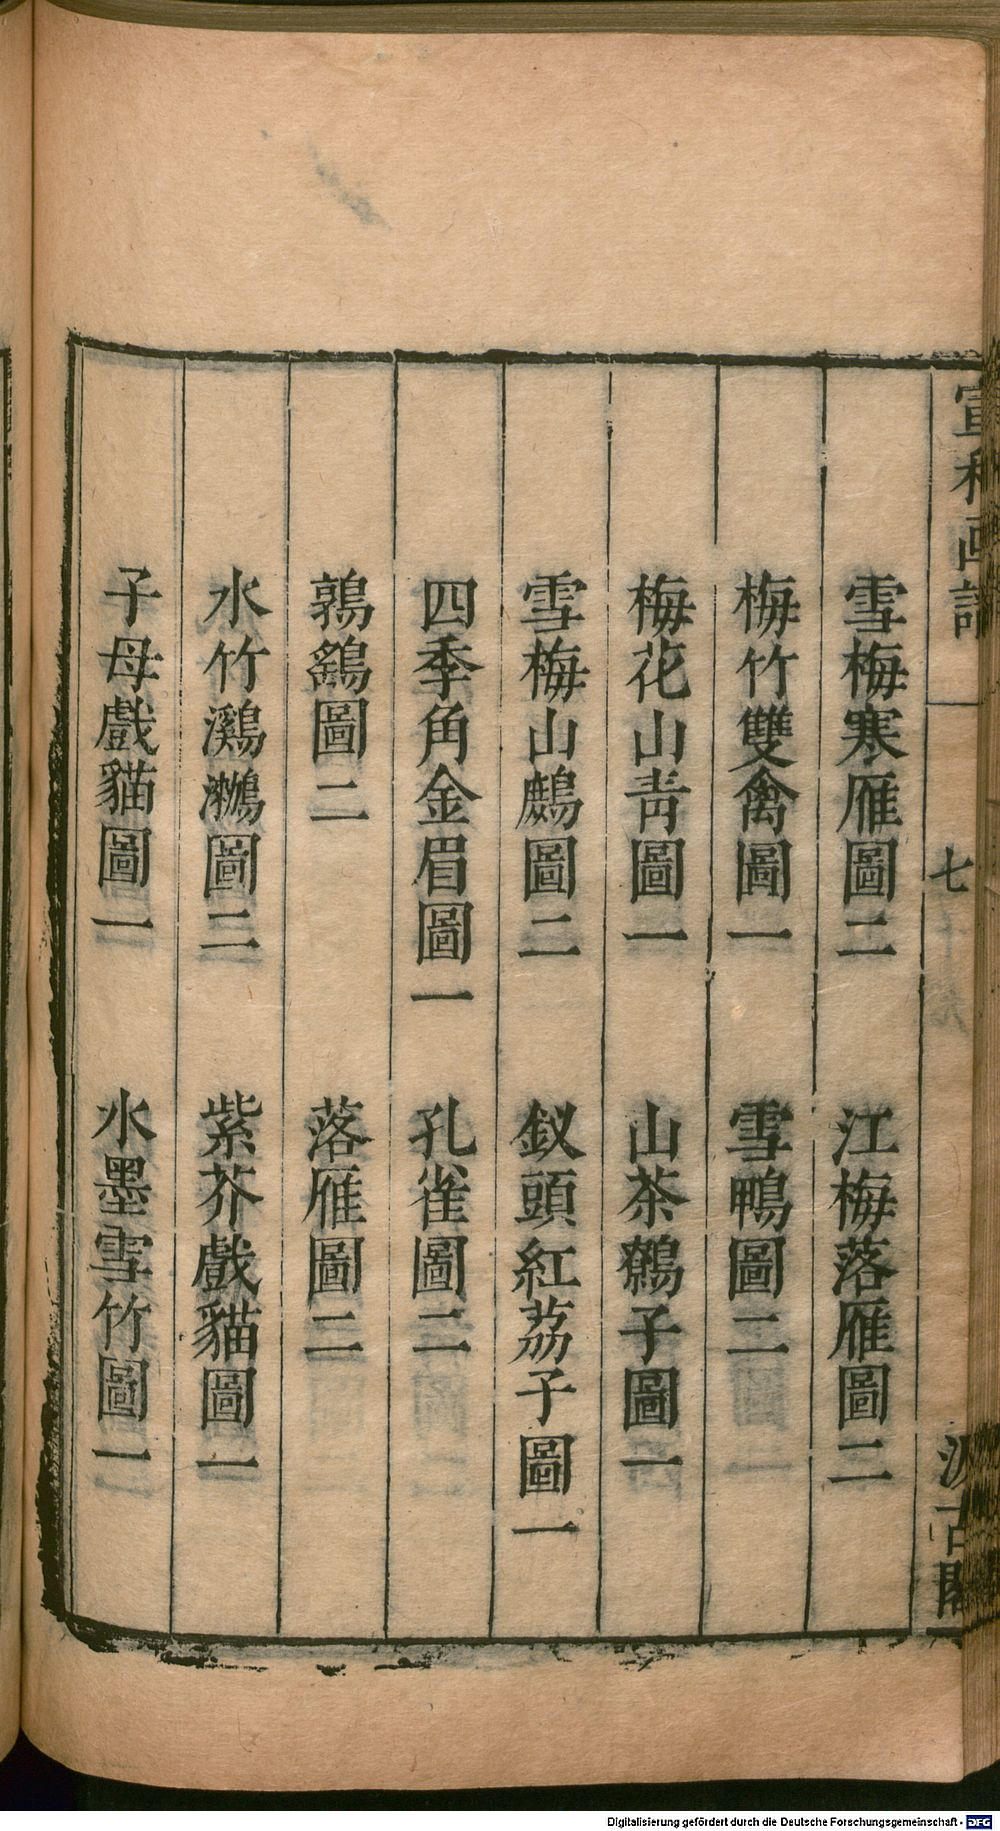 宣和画譜 七 汲古閣
雪梅寒雁圖二 江梅落雁圖二
梅竹雙禽圖一 雪鴨圖二
梅花山靑圖一 山茶鶺子圖一
雪梅山鷓圖二 釵頭紅荔子圖一
四季角金眉圖一 孔雀圖二
鶉鷂圖二 落雁圖二
水竹鸂鷘圖二 紫芥戲貓圖一
子母戲貓圖一 水墨雪竹圖一
Digitalisierung gefördert durch die Deutsche Forschungsgemeinschaft - DFG